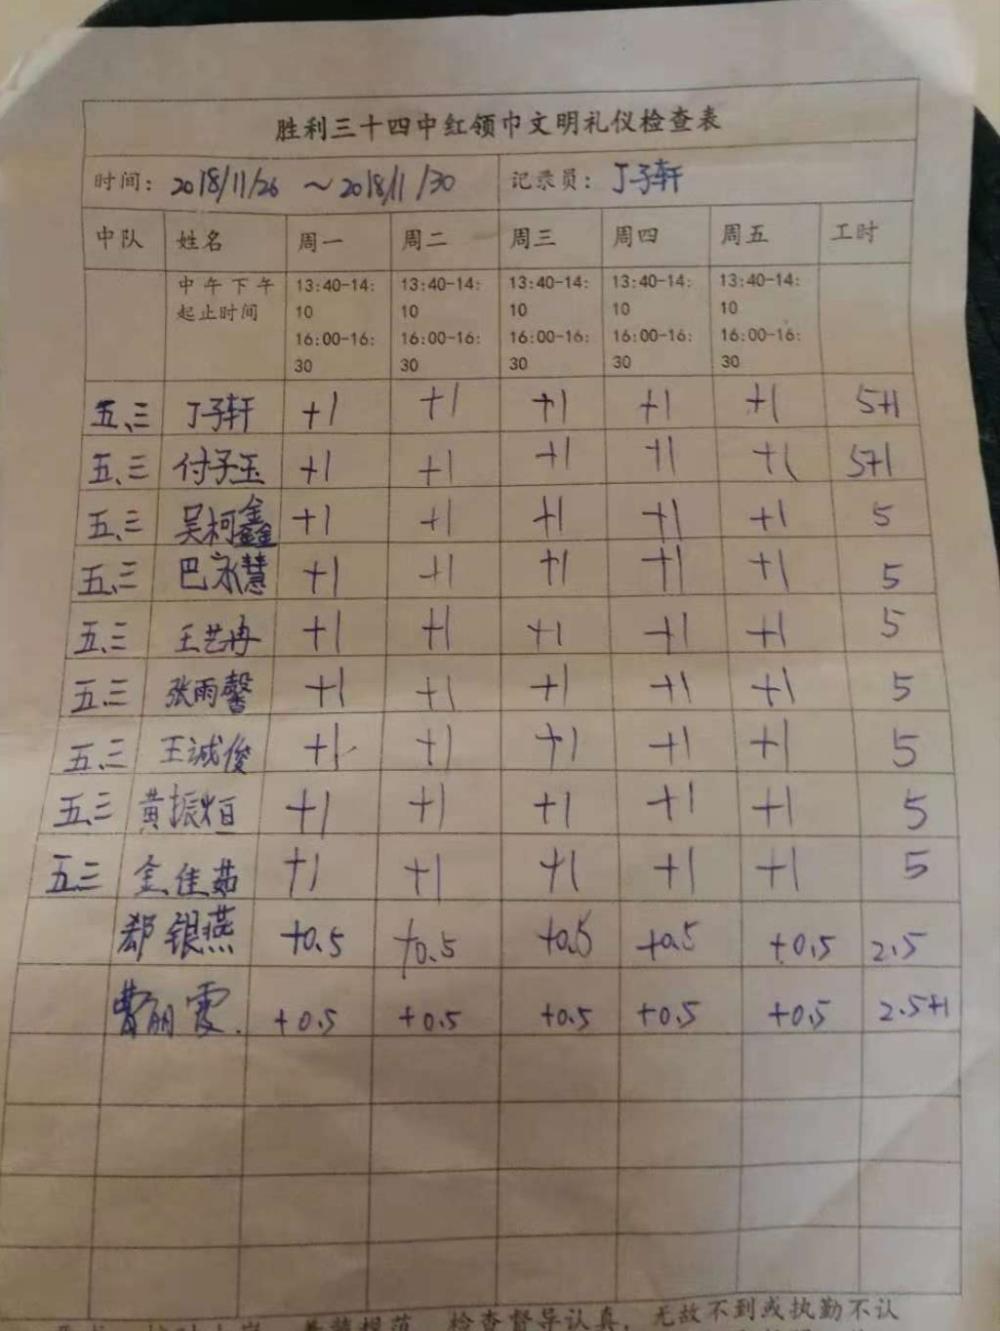 胜利三十四中红领巾文明礼仪检查表
时间：2018/11/26 ～2018/11/30 记录员：丁子轩
中队 姓名 周一 周二 周三 周四 周五 工时
中午下午 13:40-14: 13:40-14: 13:40-14: 13:40-14: 13:40-14:
起止时间 10 10 10 10 10
16:00-16: 16:00-16: 16:00-16: 16:00-16: 16:00-16:
30 30 30 30 30
五.三 丁子轩 +1 +1 +1 +1 +1 5+1
五.三 付子玉 +1 +1 +1 +1 +1 5+1
五.三 吴柯鑫 +1 +1 +1 +1 +1 5
五.三 巴永慧 +1 +1 +1 +1 +1 5
五.三 王艺冉 +1 +1 +1 +1 +1 5
五.三 张雨馨 +1 +1 +1 +1 +1 5
五.三 王诚俊 +1 +1 +1 +1 +1 5
五.三 黄振烜 +1 +1 +1 +1 +1 5
五.三 金佳茹 +1 +1 +1 +1 +1 5
郄银燕 +0.5 +0.5 +0.5 +0.5 +0.5 2.5
曹丽霞. +0.5 +0.5 +0.5 +0.5 +0.5 2.5+1
着装规范，检查督导认真，无故不到或执勤不认